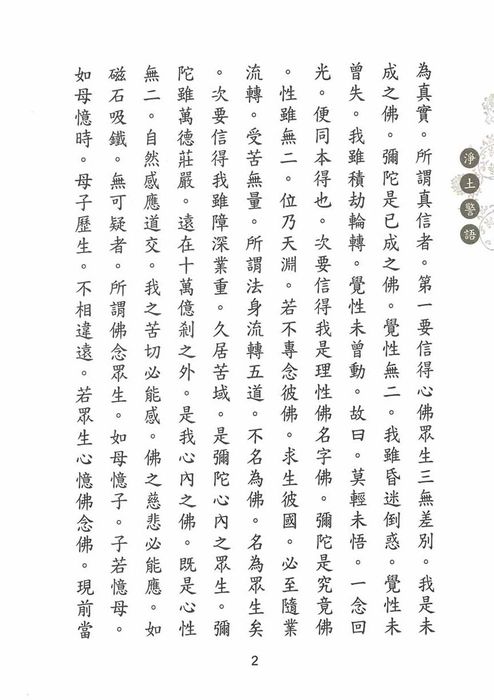 淨土警語
為真實。所謂真信者。第一要信得心佛眾生三無差別。我是未
成之佛。彌陀是已成之佛。覺性無二。我雖昏迷倒惑。覺性未
曾失。我雖積劫輪轉。覺性未曾動。故曰。莫輕未悟。一念回
光。便同本得也。次要信得我是理性佛名字佛。彌陀是究竟佛
。性雖無二。位乃天淵。若不專念彼佛。求生彼國。必至隨業
流轉。受苦無量。所謂法身流轉五道。不名為佛。名為眾生矣
。次要信得我雖障深業重。久居苦域。是彌陀心內之眾生。彌
陀雖萬德莊嚴。遠在十萬億剎之外。是我心內之佛。既是心性
無二。自然感應道交。我之苦切必能感。佛之慈悲必能應。如
磁石吸鐵。無可疑者。所謂佛念眾生。如母憶子。子若憶母。
如母憶時。母子歷生。不相違遠。若眾生心憶佛念佛。現前當
2